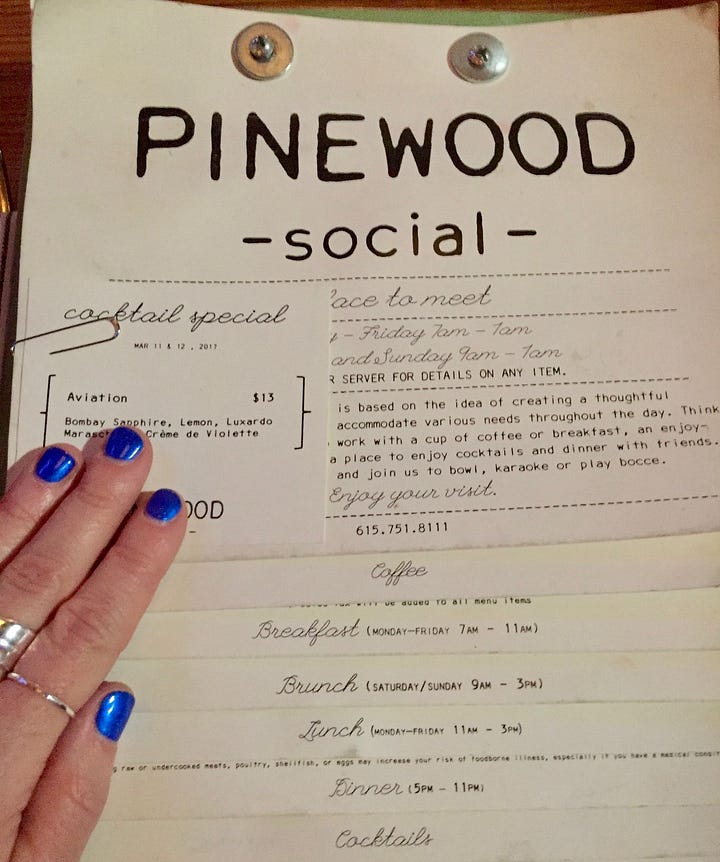 PINEWOOD
-social-
cocktail special
MAR 11 & 12, 2017
Aviation $13
Bombay Sapphire, Lemon, Luxardo
Crème de Violette
to meet
– Friday 7am – 1am
and Sunday 9am – 1am
SERVER FOR DETAILS ON ANY ITEM.
is based on the idea of creating a thoughtful
accommodate various needs throughout the day. Think
work with a cup of coffee or breakfast, an enjoy-
a place to enjoy cocktails and dinner with friends.
and join us to bowl, karaoke or play bocce.
Enjoy your visit.
615.751.8111
Coffee
will be added to all menu items
Breakfast (MONDAY–FRIDAY 7AM – 11AM)
Brunch (SATURDAY/SUNDAY 9AM – 3PM)
Lunch (MONDAY–FRIDAY 11AM – 3PM)
raw or undercooked meats, poultry, shellfish, or eggs may increase your risk of foodborne illness, especially if you have a medical
Dinner (5PM – 11PM)
Cocktails